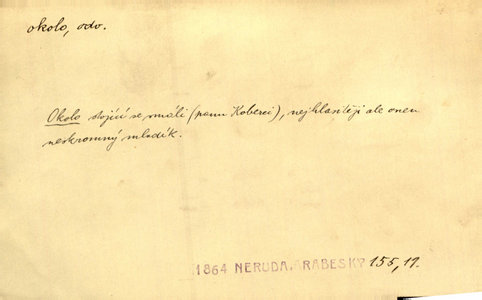 okolo, adv.
Okolo stojící se smáli (panu Koberci), nejhlasitěji ale onen
neskromný mladík.
1864 NERUDA, ARABESKY 155,19.